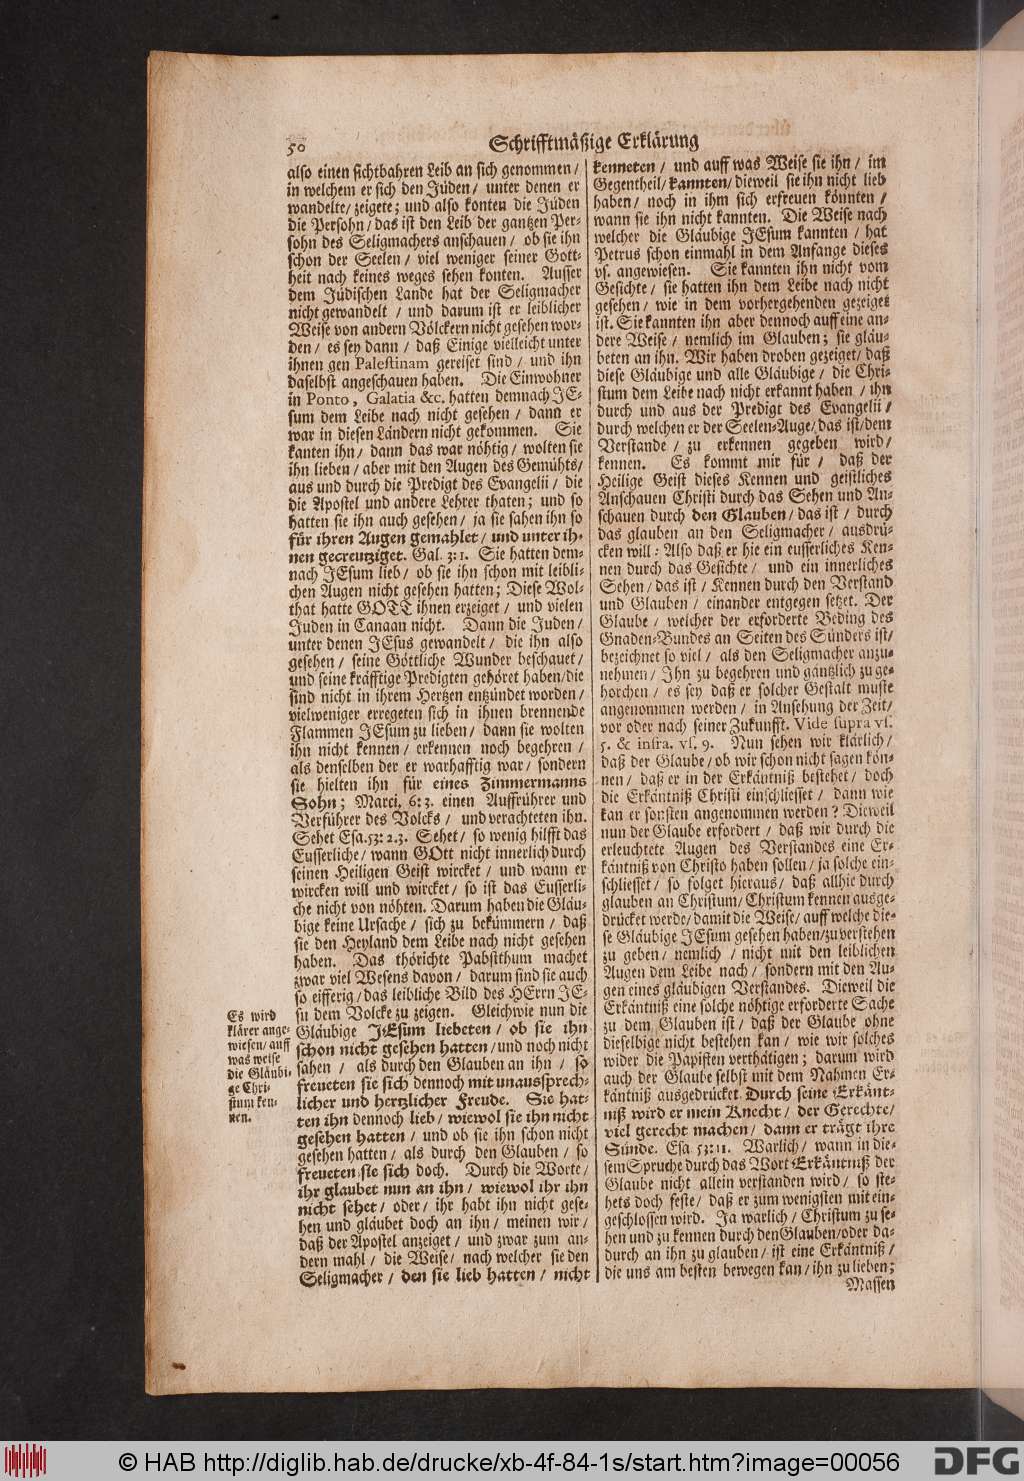 50
Schrifftmäßige Erklärung
also einen sichtbahren Leib an sich genommen /
in welchem er sich den Jüden / unter denen er
wandelte / zeigete; und also konten die Jüden
die Persohn / das ist den Leib der gantzen Per-
sohn des Seligmachers anschauen / ob sie ihn
schon der Seelen / viel weniger seiner Gott-
heit nach keines weges sehen konten. Ausser
dem Jüdischen Lande hat der Seligmacher
nicht gewandelt / und darum ist er leiblicher
Weise von andern Völckern nicht gesehen wor-
den / es sey dann / daß Einige vielleicht unter
ihnen gen Palestinam gereiset sind / und ihn
daselbst angeschauen haben. Die Einwohner
in Ponto, Galatia &c. hatten demnach JE-
sum dem Leibe nach nicht gesehen / dann er
war in diesen Ländern nicht gekommen. Sie
kanten ihn / dann das war nöhtig / wolten sie
ihn lieben / aber mit den Augen des Gemühts /
aus und durch die Predigt des Evangelii / die
die Apostel und andere Lehrer thaten; und so
hatten sie ihn auch gesehen / ja sie sahen ihn so
für ihren Augen gemahlet / und unter ih-
nen gecreutziget. Gal. 3:1. Sie hatten dem-
nach JEsum lieb / ob sie ihn schon mit leibli-
chen Augen nicht gesehen hatten; Diese Wol-
that hatte GOTT ihnen erzeiget / und vielen
Juden in Canaan nicht. Dann die Juden /
unter denen JEsus gewandelt / die ihn also
gesehen / seine Göttliche Wunder beschauet /
und seine kräfftige Predigten gehöret haben / die
sind nicht in ihrem Hertzen entzündet worden /
vielweniger erregeten sich in ihnen brennende
Flammen JEsum zu lieben / dann sie wolten
ihn nicht kennen / erkennen noch begehren /
als denselben der er warhafftig war / sondern
sie hielten ihn für eines Zimmermanns
Sohn; Marci. 6:3. einen Auffrührer und
Verführer des Volcks / und verachteten ihn.
Sehet Esa. 53:2.3. Sehet / so wenig hilfft das
Eusserliche / wann GOtt nicht innerlich durch
seinen Heiligen Geist wircket / und wann er
wircken will und wircket / so ist das Eusserli-
che nicht von nöhten. Darum haben die Gläu-
bige keine Ursache / sich zu bekümmern / daß
sie den Heyland dem Leibe nach nicht gesehen
haben. Das thörichte Pabstthum machet
zwar viel Wesens davon / darum sind sie auch
so eifferig / das leibliche Bild des HErrn JE-
su dem Volcke zu zeigen. Gleichwie nun die
Gläubige JEsum liebeten / ob sie ihn
schon nicht gesehen hatten / und noch nicht
sahen / als durch den Glauben an ihn / so
freueten sie sich dennoch mit unaussprech-
licher und hertzlicher Freude. Sie hat-
ten ihn dennoch lieb / wiewol sie ihn nicht
gesehen hatten / und ob sie ihn schon nicht
gesehen hatten / als durch den Glauben / so
freueten sie sich doch. Durch die Worte /
ihr glaubet nun an ihn / wiewol ihr ihn
nicht sehet / oder / ihr habt ihn nicht gese-
hen und gläubet doch an ihn / meinen wir /
daß der Apostel anzeiget / und zwar zum an-
dern mahl / die Weise / nach welcher sie den
Seligmacher / den sie lieb hatten / nicht
Es wird
klärer ange-
wiesen / auff
was weise
die Gläubi-
ge Chri-
stum ken-
nen.
kenneten / und auff was Weise sie ihn / im
Gegentheil / kannten / dieweil sie ihn nicht lieb
haben / noch in ihm sich erfreuen könnten /
wann sie ihn nicht kannten. Die Weise nach
welcher die Gläubige JEsum kannten / hat
Petrus schon einmahl in dem Anfange dieses
vs. angewiesen. Sie kannten ihn nicht vom
Gesichte / sie hatten ihn dem Leibe nach nicht
gesehen / wie in dem vorhergehenden gezeiget
ist. Sie kannten ihn aber dennoch auff eine an-
dere Weise / nemlich im Glauben; sie gläu-
beten an ihn. Wir haben droben gezeiget / daß
diese Gläubige und alle Gläubige / die Chri-
stum dem Leibe nach nicht erkannt haben / ihn
durch und aus der Predigt des Evangelii /
durch welchen er der Seelen-Auge / das ist / dem
Verstande / zu erkennen gegeben wird /
kennen. Es kommt mir für / daß der
Heilige Geist dieses Kennen und geistliches
Anschauen Christi durch das Sehen und An-
schauen durch den Glauben / das ist / durch
das glauben an den Seligmacher / ausdrü-
cken will: Also daß er hie ein eusserliches Ken-
nen durch das Gesichte / und ein innerliches
Sehen / das ist / Kennen durch den Verstand
und Glauben / einander entgegen setzet. Der
Glaube / welcher der erforderte Beding des
Gnaden-Bundes an Seiten des Sünders ist /
bezeichnet so viel / als den Seligmacher anzu-
nehmen / Ihn zu begehren und gäntzlich zu ge-
horchen / es sey daß er solcher Gestalt muste
angenommen werden / in Ansehung der Zeit /
vor oder nach seiner Zukunfft. Vide supra vs.
5. & infra. vs. 9. Nun sehen wir klärlich /
daß der Glaube / ob wir schon nicht sagen kön-
nen / daß er in der Erkäntniß bestehet / doch
die Erkäntniß Christi einschliesset / dann wie
kan er sonsten angenommen werden? Dieweil
nun der Glaube erfordert / daß wir durch die
erleuchtete Augen des Verstandes eine Er-
käntniß von Christo haben sollen / ja solche ein-
schliesset / so folget hieraus / daß allhie durch
glauben an Christum / Christum kennen ausge-
drücket werde / damit die Weise / auff welche die-
se Gläubige JEsum gesehen haben / zu verstehen
zu geben / nemlich / nicht mit den leiblichen
Augen dem Leibe nach / sondern mit den Au-
gen eines gläubigen Verstandes. Dieweil die
Erkäntniß eine solche nöhtige erforderte Sache
zu dem Glauben ist / daß der Glaube ohne
dieselbige nicht bestehen kan / wie wir solches
wider die Papisten verthätigen; darum wird
auch der Glaube selbst mit dem Nahmen Er-
käntniß ausgedrücket. Durch seine Erkänt-
niß wird er mein Knecht / der Gerechte /
viel gerecht machen / dann er trägt ihre
Sünde. Esa 53:11. Warlich / wann in die-
sem Spruche durch das Wort Erkäntniß der
Glaube nicht allein verstanden wird / so ste-
hets doch feste / daß er zum wenigsten mit ein-
geschlossen wird. Ja warlich / Christum zu se-
hen und zu kennen durch den Glauben / oder da-
durch an ihn zu glauben / ist eine Erkäntniß /
die uns am besten bewegen kan / ihn zu lieben;
Massen
© HAB http://diglib.hab.de/drucke/xb-4f-84-1s/start.htm?image=00056
DFG